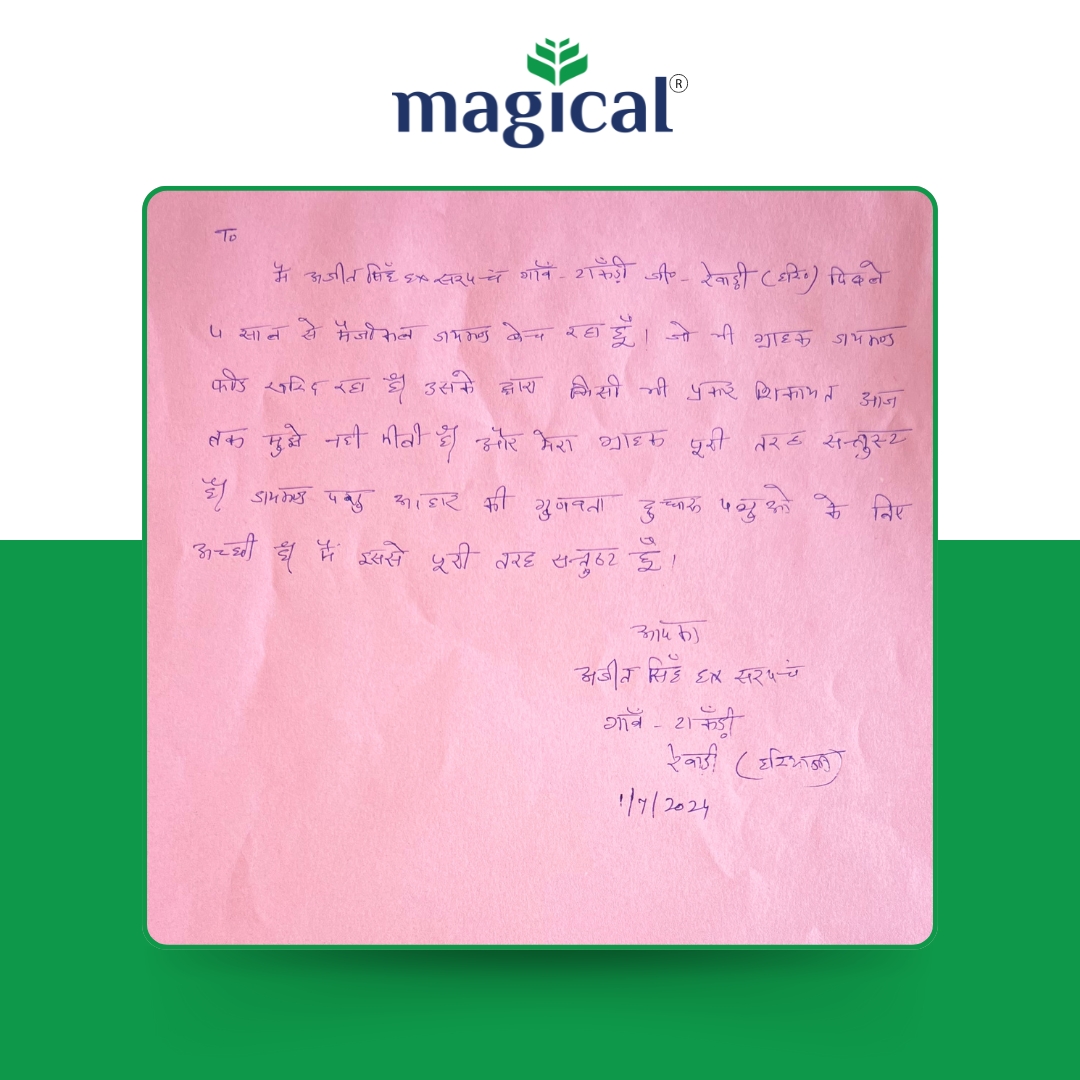 magical®
To
मै अजीत सिहँ Ex सरपचं गाँव - टाकँड़ी जी० - रेवाड़ी (हरि०) पिछले
5 साल से मैजीकल डायमण्ड बेच रहा हूँ। जो भी ग्राहक डायमण्ड
फीड खरिद रहा है। उसके द्वारा किसी भी प्रकार शिकायत आज
तक मुझे नही मीली है। और मेरा ग्राहक पूरी तरह सन्तुस्ट
है। डायमण्ड पशु आहार की गुणवता दुधारू पशुओ के लिए
अच्छी है। मैं इससे पूरी तरह सन्तुष्ट हूँ।
आपका
अजीत सिहँ Ex सरपचं
गाँव - टाकँड़ी
रेवाड़ी (हरियाणा)
1/7/2024